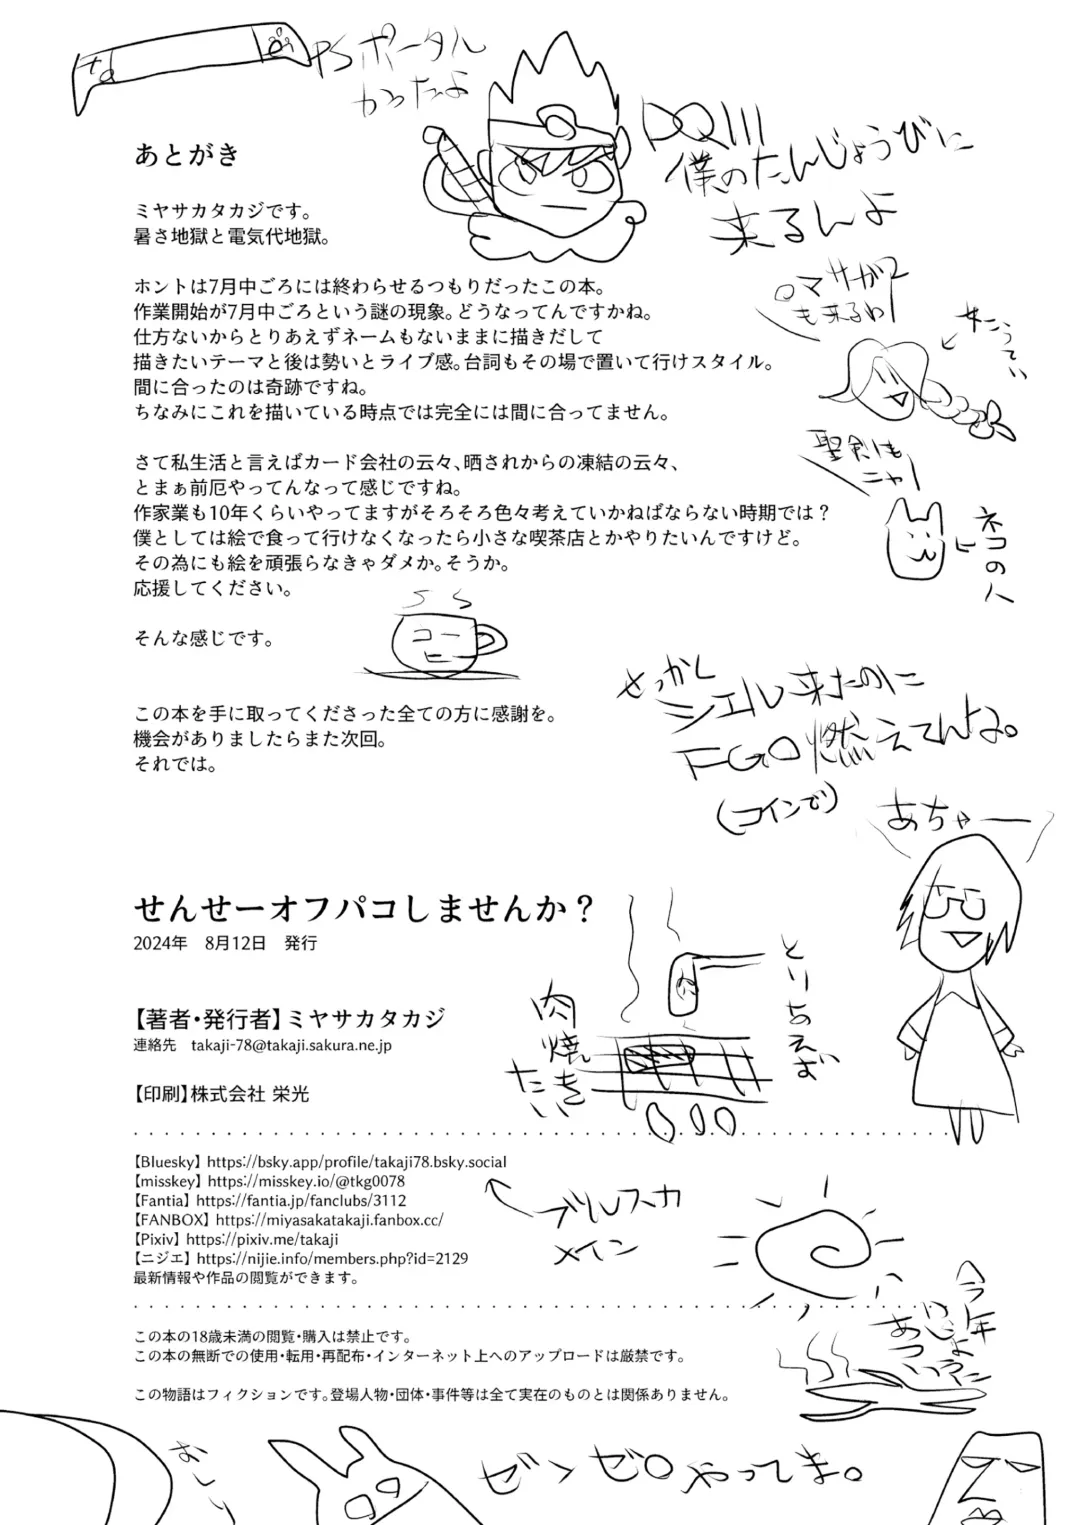 PSポータル
かったよ
DQIII
僕のたんじょうびに
来るんよ
あとがき
ミヤサカタカジです。
暑さ地獄と電気代地獄。
ホントは7月中ごろには終わらせるつもりだったこの本。
作業開始が7月中ごろという謎の現象。どうなってんですかね。
仕方ないからとりあえずネームもないままに描きだして
描きたいテーマと後は勢いとライブ感。台詞もその場で置いて行けスタイル。
間に合ったのは奇跡ですね。
ちなみにこれを描いている時点では完全には間に合ってません。
ロマサガ2
も来るわ
聖剣も
ニャー
ネコの人
さて私生活と言えばカード会社の云々、晒されからの凍結の云々、
とまぁ前厄やってんなって感じですね。
作家業も10年くらいやってますがそろそろ色々考えていかねばならない時期では？
僕としては絵で食って行けなくなったら小さな喫茶店とかやりたいんですけど。
その為にも絵を頑張らなきゃダメか。そうか。
応援してください。
そんな感じです。
せっかく
シエル来たのに
FGO燃えてんな。
(コインで)
あちゃー
この本を手に取ってくださった全ての方に感謝を。
機会がありましたらまた次回。
それでは。
せんせーオフパコしませんか？
2024年　8月12日　発行
とりあえず
肉焼きたい
【著者・発行者】ミヤサカタカジ
連絡先　takaji-78@takaji.sakura.ne.jp
【印刷】株式会社 栄光
【Bluesky】https://bsky.app/profile/takaji78.bsky.social
【misskey】https://misskey.io/@tkg0078
【Fantia】https://fantia.jp/fanclubs/3112
【FANBOX】https://miyasakatakaji.fanbox.cc/
【Pixiv】https://pixiv.me/takaji
【ニジエ】https://nijie.info/members.php?id=2129
最新情報や作品の閲覧ができます。
ブルスカ
メイン
今年
あつい
この本の18歳未満の閲覧・購入は禁止です。
この本の無断での使用・転用・再配布・インターネット上へのアップロードは厳禁です。
この物語はフィクションです。登場人物・団体・事件等は全て実在のものとは関係ありません。
おしり
ゼンゼロやってま。